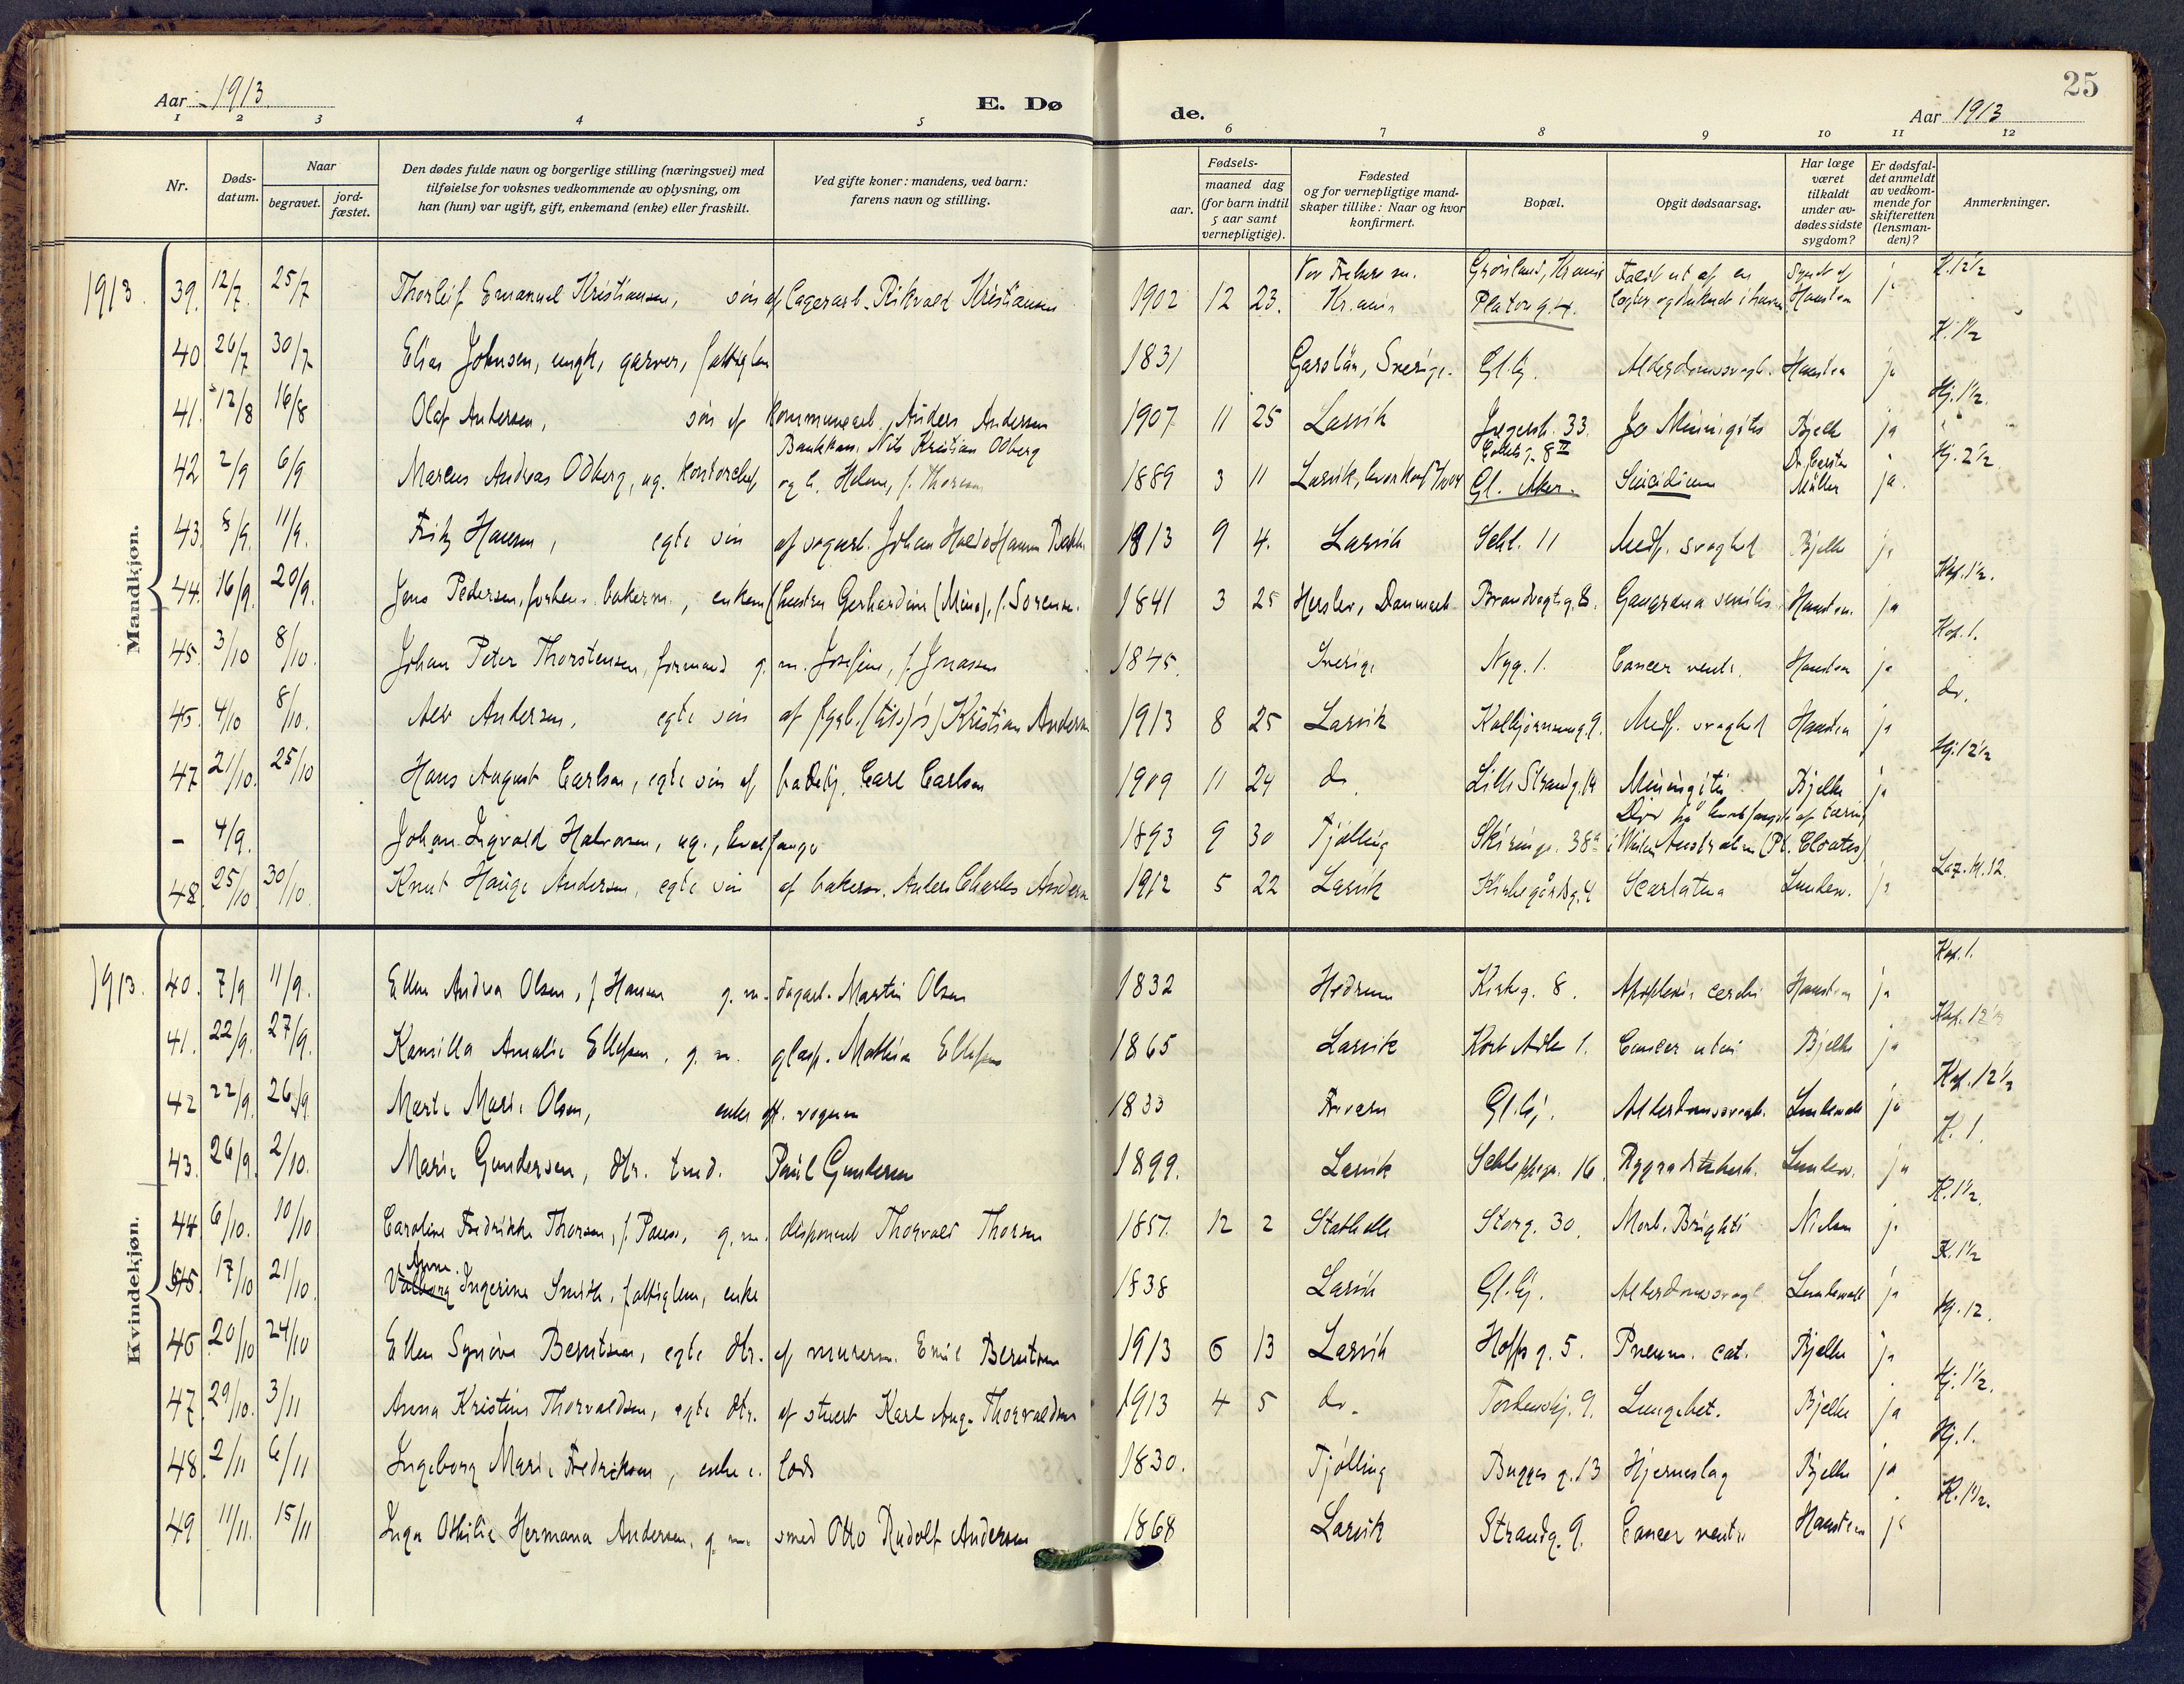 25
Aar 1913.
E. Dø
de.
Aar 1913
1 2 3 4 5 6 7 8 9 10 11 12
Nr.
Døds-
datum.
Naar
begravet.
jord-
fæstet.
Den dødes fulde navn og borgerlige stilling (næringsvei) med
tilføielse for voksnes vedkommende av oplysning, om
han (hun) var ugift, gift, enkemand (enke) eller fraskilt.
Ved gifte koner: mandens, ved barn:
farens navn og stilling.
Fødsels-
aar.
maaned dag
(for barn indtil
5 aar samt
vernepligtige).
Fødested
og for vernepligtige mand-
skaper tillike: Naar og hvor
konfirmert.
Bopæl.
Opgit dødsaarsag.
Har læge
været
tilkaldt
under av-
dødes sidste
sygdom?
Er dødsfal-
det anmeldt
av vedkom-
mende for
skifteretten
(lensman-
den)?
Anmerkninger.
Mandkjøn.
1913. 39. 12/7 25/7 Thorleif Emanuel Kristiansen, søn af lagerarb. Rikvald Kristiansen 1902 12 23. Kr.ania Platoug. 4. K. 12 1/2
40 26/7 30/7 Elias Johnsen, ungk., garver, fattiglem 1831 Sverige. Gl.hj. Alderdomssvagh. Hansten ja K. 1 1/2
41. 12/8 16/8 Olaf Andersen, søn af kommunearb. Anders Andersen 1907 11 25 Larvik Jegersb. 33. Bjelke ja Hj. 1 1/2.
42 2/9 6/9 Marcus Andreas Odberg, ug. kontorchef Nils Kristian Odberg og h. Helene, f. Thorsen 1889 3 11 Larvik, Gl. Aker. Suicidium Müller ja. Hj. 2 1/2.
43. 8/9. 11/9. Fritz Hansen, egte søn af Johan Hansen 1913 9 4. Larvik 11 Medf. svaghed Bjelke ja
44. 16/9. 20/9. Jens Pedersen, forhen. bakerm., enkem. (hustru Gerhardine (Mina), f. Sørensen. 1841 3 25 Danmark Brandvagtg. 8. Gangræna senilis. Hansten. ja Kap. 1 1/2.
45. 3/10 8/10. Johan Peter Thorstensen, formand g. m. Josefine, f. Jonassen 1845. Sverige Nyg. 1. Cancer ventr. Hansten ja Kap. 1.
45. 4/10 8/10. Andersen, egte søn af Kristian Andersen 1913 8 25 Larvik Kolbjørnsensg. 9. Medf. svaghed Hansten ja do.
47 21/10. 25/10 Hans August Carlsen, egte søn af Carl Carlsen 1909 11 24 do. Lille Strandg. 14 Meningitis Bjelke ja Hj. 12 1/2
– 4/9. Johan Ingvald Halvorsen, ug., hvalfanger 1893 9 30 Tjølling 38a Døde på hvalfangst af tæring i Australien (Pt. Cloates)
48. 25/10 30/10. Knut Hauge Andersen, egte søn af bakerm. Anders Charles Andersen 1912 5 22 Larvik Kirkegårdsg. 4 Scarlatina Lundew. ja K. 12.
Kvindekjøn.
1913. 40. 7/9 11/9. Ellen Andrea Olsen, f. Hansen g. m. dagarb. Martin Olsen 1832 Hedrum Kirkeg. 8. Apoplexia cerebri Hansten ja Kap. 1.
41. 22/9. 27/9. Kamilla Amalie Ellefsen, g. m. Mathias Ellefsen 1865 Larvik Kort Adler 1. Cancer uteri Bjelke ja
42 22/9. 26/9. Marte Marie Olsen, enke eft. vognm 1833 Gl.hj. Alderdomssvagh. Lundewall ja Kap. 12 1/2
43. 26/9. 2/10. Marie Gundersen, dtr. Paul Gundersen 1899. Larvik 16. Lundew. ja K. 1.
44 6/10. 10/10 Caroline Fredrikke Thorsen, f. Paus, g. m. disponent Thorvald Thorsen 1857. 12 2 Stathelle Storg. 30. Morb. Brighti Nielsen ja K. 1 1/2.
45. 17/10 21/10. Anna Ingerine Smith, fattiglem, enke 1838 Larvik Gl.hj. Alderdomssvagh. Lundewall ja K. 1 1/2
46 20/10 24/10 Ellen Synøve Berntsen, egte dtr. af murerm. Emil Berntsen 1913 6 13 Larvik Hoffsg. 5. Pneum. cat. Bjelke ja Hj. 12.
47. 29/10. 3/11 Anna Kristine Thorvaldsen, egte dtr. af stuert Karl Aug. Thorvaldsen 1913 4 5 do. Tordenskj. 9. Lungebet. Bjelke ja Hj. 1 1/2.
48. 2/11 6/11 Ingeborg Marie Fredriksen, enke e. lods 1830. Tjølling Bugges g. 13 Hjerneslag Bjelke ja Hj. 1.
49 11/11. 15/11 Inga Othilie Hermana Andersen, g. m. smed Otto Rudolf Andersen 1868 Larvik Strandg. 9. Cancer ventr. Hansten ja K. 1 1/2.